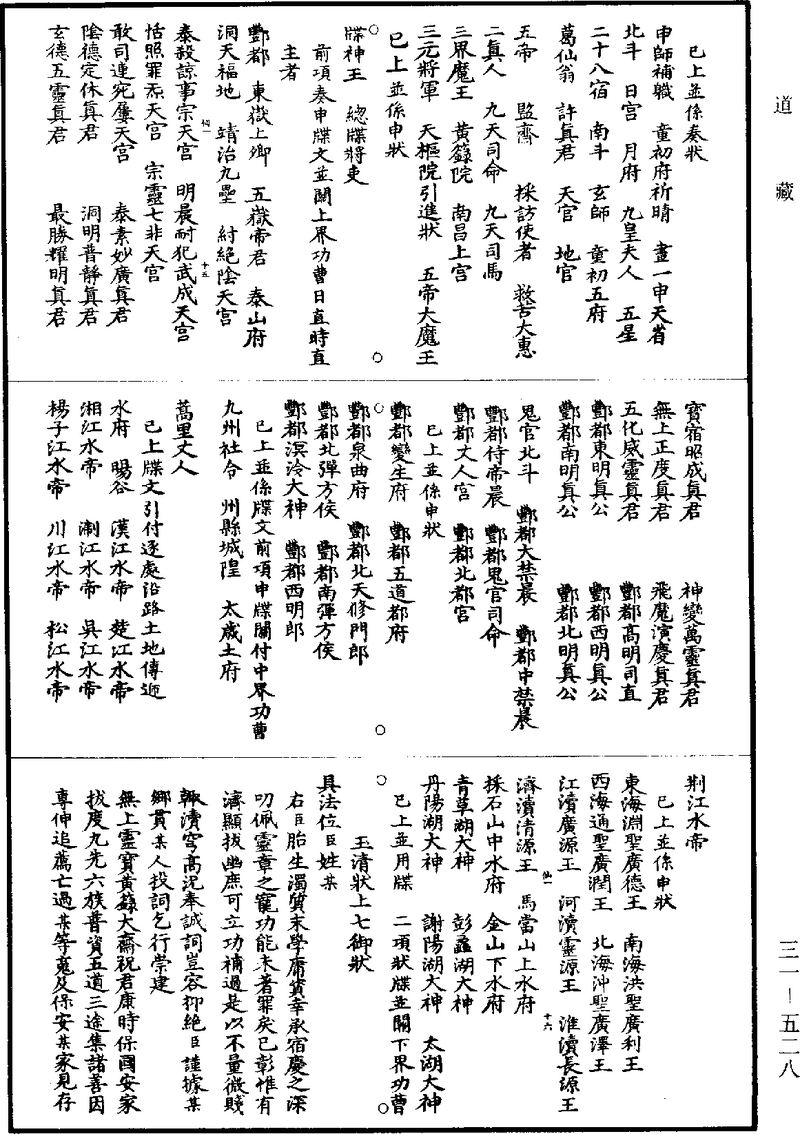 道藏
已上並係奏狀
申師補職　童初府祈晴　畫一申天省
北斗　日宮　月府　九皇夫人　五星
二十八宿　南斗　玄師　童初五府
葛仙翁　許真君　天官　地官
五帝　監齋　採訪使者　救苦大惠
二真人　九天司命　九天司馬
三界魔王　黃籙院　南昌上宮
三元將軍　天樞院引進狀　五帝大魔王
已上並係申狀
牒神王　總牒將吏
前項奏申牒文並關上界功曹日直時直
主者
酆都　東嶽上卿　五嶽帝君　泰山府
洞天福地　靖治九壘　紂絕陰天宮
泰殺諒事宗天宮　明晨耐犯武成天宮
恬照罪炁天宮　宗靈七非天宮
敢司連宛屢天宮　泰素妙廣真君
陰德定休真君　洞明普靜真君
玄德五靈真君　最勝耀明真君
寶宿昭成真君　神變萬靈真君
無上正度真君　飛魔演慶真君
五化威靈真君　酆都高明司直
酆都東明真公　酆都西明真公
酆都南明真公　酆都北明真公
鬼官北斗　酆都大禁晨　酆都中禁晨
酆都侍帝晨　酆都鬼官司命
酆都丈人宮　酆都北都宮
已上並係申狀
酆都變生府　酆都五道都府
酆都泉曲府　酆都北天修門郎
酆都北彈方侯　酆都南彈方侯
酆都溟泠大神　酆都西明郎
已上並係牒文前項申牒關付中界功曹
九州社令　州縣城隍　太歲土府
蒿里丈人
已上牒文引付逐處沿路土地傳遞
水府　暘谷　漢江水帝　楚江水帝
湘江水帝　淛江水帝　吳江水帝
楊子江水帝　川江水帝　松江水帝
荆江水帝
已上並係申狀
東海淵聖廣德王　南海洪聖廣利王
西海通聖廣潤王　北海沖聖廣澤王
江瀆廣源王　河瀆靈源王　淮瀆長源王
濟瀆清源王　馬當山上水府
採石山中水府　金山下水府
青草湖大神　彭蠡湖大神
丹陽湖大神　謝陽湖大神　太湖大神
已上並用牒　二項狀牒並關下界功曹
玉清狀上七御狀
具法位臣姓某
右臣胎生濁質末學庸資幸承宿慶之深
叨佩靈章之寵功能未著罪戾已彰惟有
濟顯拔幽庶可立功補過是以不量微賤
輒瀆穹高況奉誠詞豈容抑絕臣謹據某
鄉貫某人投詞乞行崇建
無上靈寶黃籙大齋祝君康時保國安家
拔度九先六族普資五道三途集諸善因
專伸追薦亡過某等寃及保安某家見存
三一－五二八